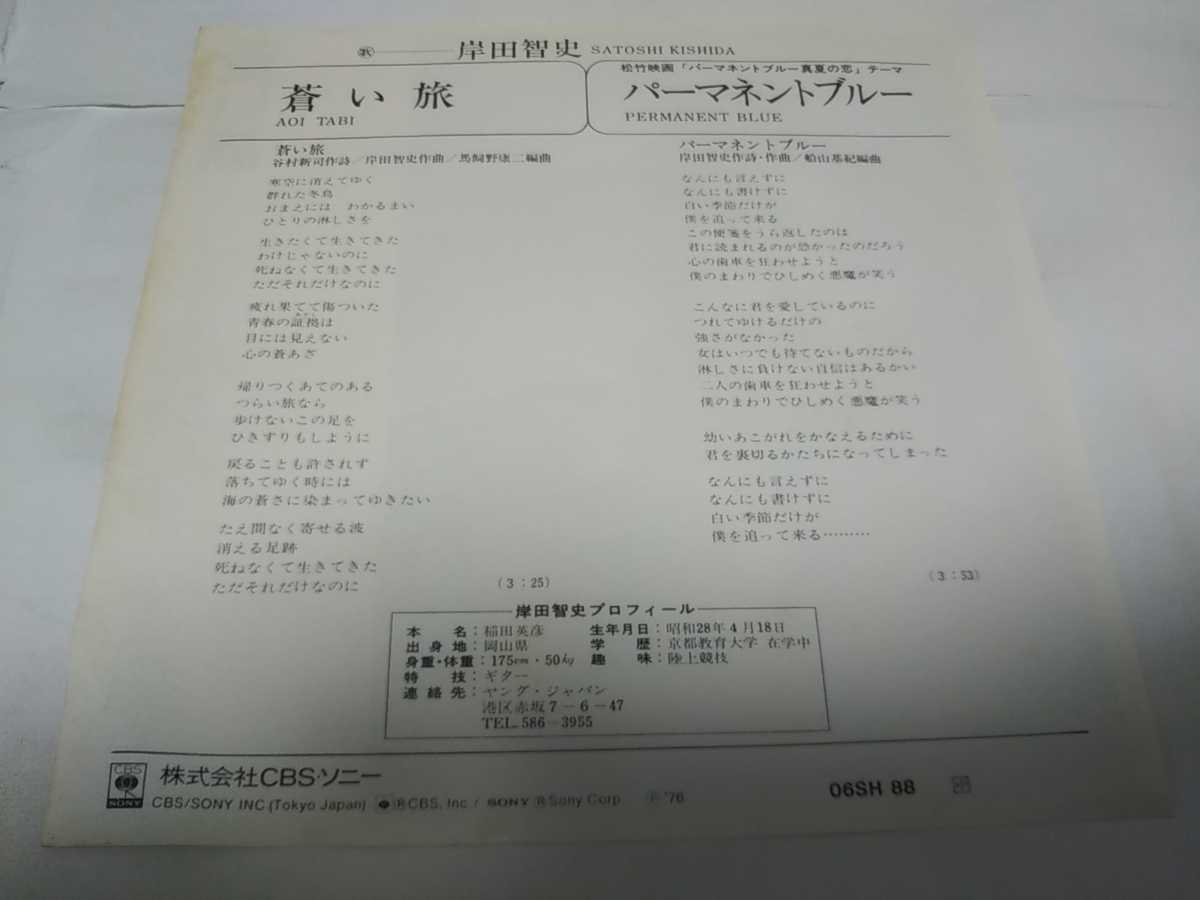 歌——岸田智史 SATOSHI KISHIDA
蒼い旅
AOI TABI
松竹映画「パーマネントブルー真夏の恋」テーマ
パーマネントブルー
PERMANENT BLUE
蒼い旅
谷村新司作詩／岸田智史作曲／馬飼野康二編曲
寒空に消えてゆく
群れた冬鳥
おまえには わかるまい
ひとりの淋しさを
生きたくて生きてきた
わけじゃないのに
死ねなくて生きてきた
ただそれだけなのに
疲れ果てて傷ついた
青春の証拠は
目には見えない
心の蒼あざ
帰りつくあてのある
つらい旅なら
歩けないこの足を
ひきずりもしように
戻ることも許されず
落ちてゆく時には
海の蒼さに染まってゆきたい
たえ間なく寄せる波
消える足跡
死ねなくて生きてきた
ただそれだけなのに
(3：25)
パーマネントブルー
岸田智史作詩・作曲／船山基紀編曲
なんにも言えずに
なんにも書けずに
白い季節だけが
僕を追って来る
この便箋をうら返したのは
君に読まれるのが恐かったのだろう
心の歯車を狂わせようと
僕のまわりでひしめく悪魔が笑う
こんなに君を愛しているのに
つれてゆけるだけの
強さがなかった
女はいつでも待てないものだから
淋しさに負けない自信はあるかい
二人の歯車を狂わせようと
僕のまわりでひしめく悪魔が笑う
幼いあこがれをかなえるために
君を裏切るかたちになってしまった
なんにも言えずに
なんにも書けずに
白い季節だけが
僕を追って来る………
(3：53)
岸田智史プロフィール
本名：稲田英彦 生年月日：昭和28年4月18日
出身地：岡山県 学歴：京都教育大学 在学中
身重・体重：175cm・50kg 趣味：陸上競技
特技：ギター
連絡先：ヤング・ジャパン
港区赤坂7－6－47
TEL. 586－3955
CBS
SONY
株式会社CBS・ソニー
CBS/SONY INC.(Tokyo Japan) ®CBS, Inc / SONY ®Sony Corp ℗'76
06SH 88